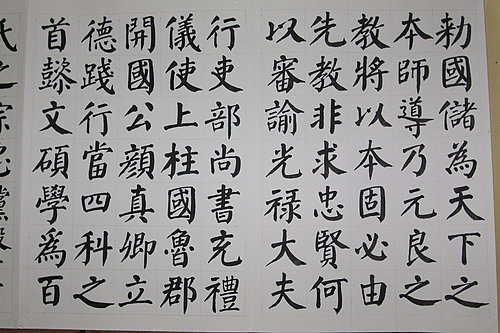 勅國儲為天下之
本師導乃元良之
教將以本固必由
先教非求忠賢何
以審諭光禄大夫
行吏部尚書充禮
儀使上柱國魯郡
開國公顔真卿立
德踐行當四科之
首懿文碩學爲百
氏之宗忠